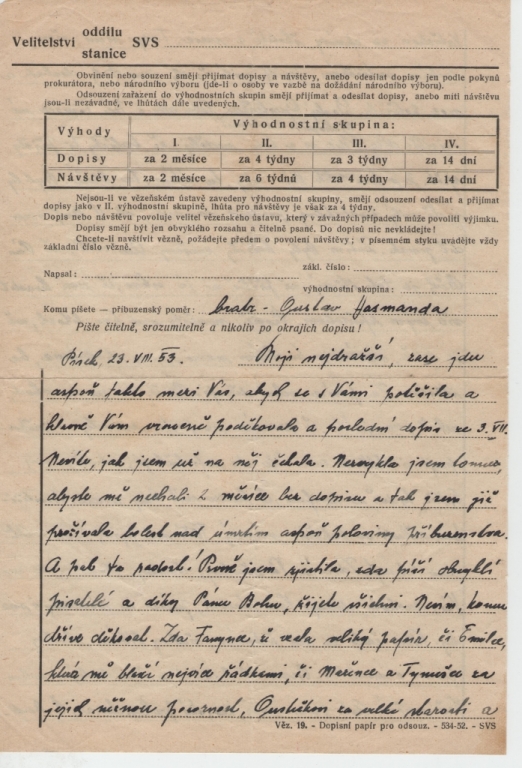 Velitelství oddílu stanice SVS
Obvinění nebo souzení smějí přijímat dopisy a návštěvy, anebo odesílat dopisy jen podle pokynů
prokurátora, nebo národního výboru (jde-li o osoby ve vazbě na dožádání národního výboru).
Odsouzení zařazení do výhodnostních skupin smějí přijímat a odesílat dopisy, anebo míti návštěvu
jsou-li nezávadné, ve lhůtách dále uvedených.
Výhody Výhodnostní skupina:
I. II. III. IV.
Dopisy za 2 měsíce za 4 týdny za 3 týdny za 14 dní
Návštěvy za 2 měsíce za 6 týdnů za 4 týdny za 14 dní
Nejsou-li ve vězeňském ústavě zavedeny výhodnostní skupiny, smějí odsouzení odesílat a přijímat
dopisy jako v II. výhodnostní skupině, lhůta pro návštěvy je však za 4 týdny.
Dopis nebo návštěvu povoluje velitel vězeňského ústavu, který v závažných případech může povoliti výjimku.
Dopisy smějí být jen obvyklého rozsahu a čitelně psané. Do dopisů nic nevkládejte!
Chcete-li navštívit vězně, požádejte předem o povolení návštěvy; v písemném styku uvádějte vždy
základní číslo vězně.
Napsal: zákl. číslo:
výhodnostní skupina:
Komu píšete — příbuzenský poměr: bratr - Gustav
Pište čitelně, srozumitelně a nikoliv po okrajích dopisu!
Písek 23. VIII. 53. Moji nejdražší, zase jdu
aspoň takto mezi Vás, abych se s Vámi potěšila a
hlavně Vám vroucně poděkovala a poslední dopis ze 3. VII.
Nevíte, jak jsem už na něj čekala. Nezvykla jsem tomu,
abyste mě nechali 2 měsíce bez dopisu a tak jsem již
prožívala bolest nad úmrtím aspoň poloviny příbuzenstva.
A pak ta radost! Prvně jsem zjistila, zda píší obvyklí
pisatelé a díky Pánu Bohu, žijete všichni. Nevím, komu
dříve děkovat. Zda že vzala veliký papír, či Emilce,
která mě blaží nejvíce řádkami, či Mařence a za
jejich něžnou pozornost, za velké starosti a
Věz. 19. - Dopisní papír pro odsouz. - 534-52. - SVS